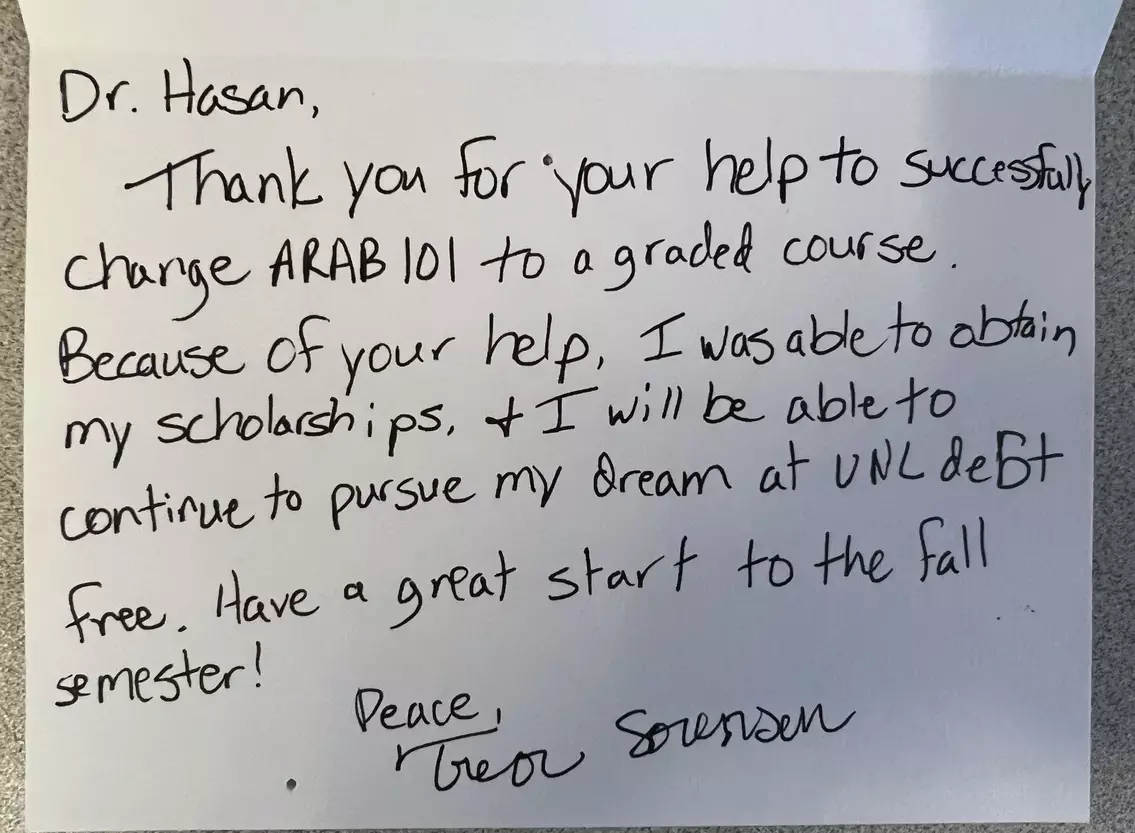 Dr. Hasan,
Thank you for your help to successfully
change ARAB 101 to a graded course.
Because of your help, I was able to obtain
my scholarships, + I will be able to
continue to pursue my dream at UNL debt
free. Have a great start to the fall
semester!
Peace,
Sorensen